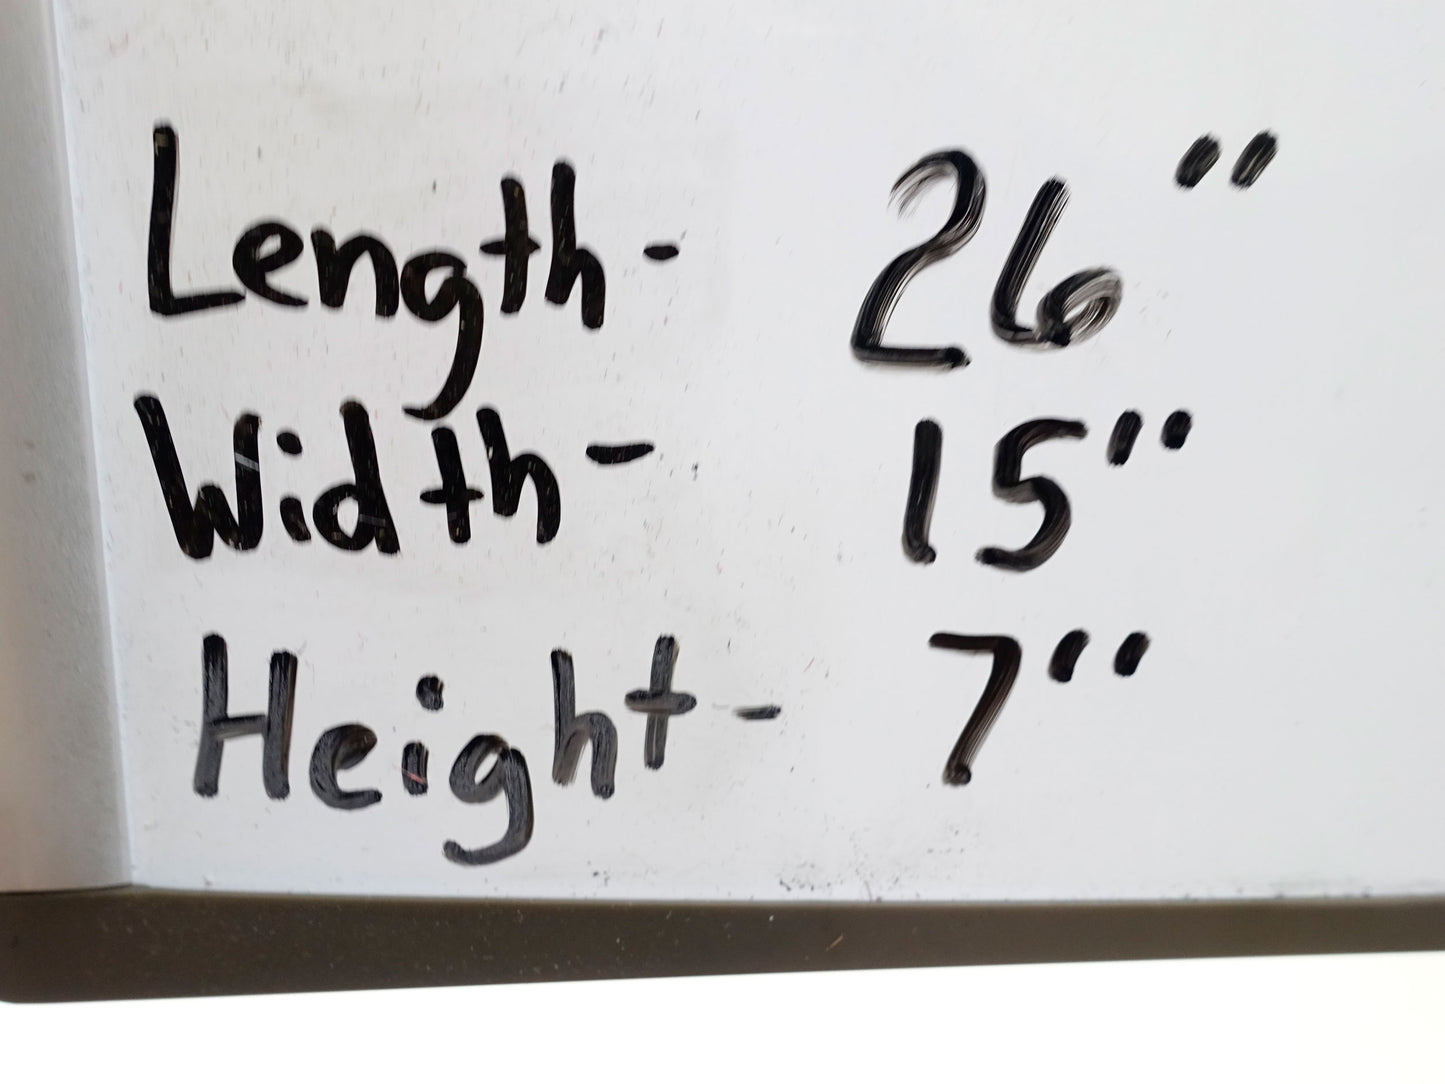 Length- 26"
Width- 15"
Height- 7"